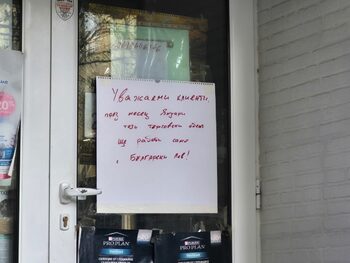 Уважаеми клиенти,
през месец Януари
този търговски обект
ще работи само
с Български лев!
20%
PURINA
PRO PLAN
PURINA
PRO PLAN